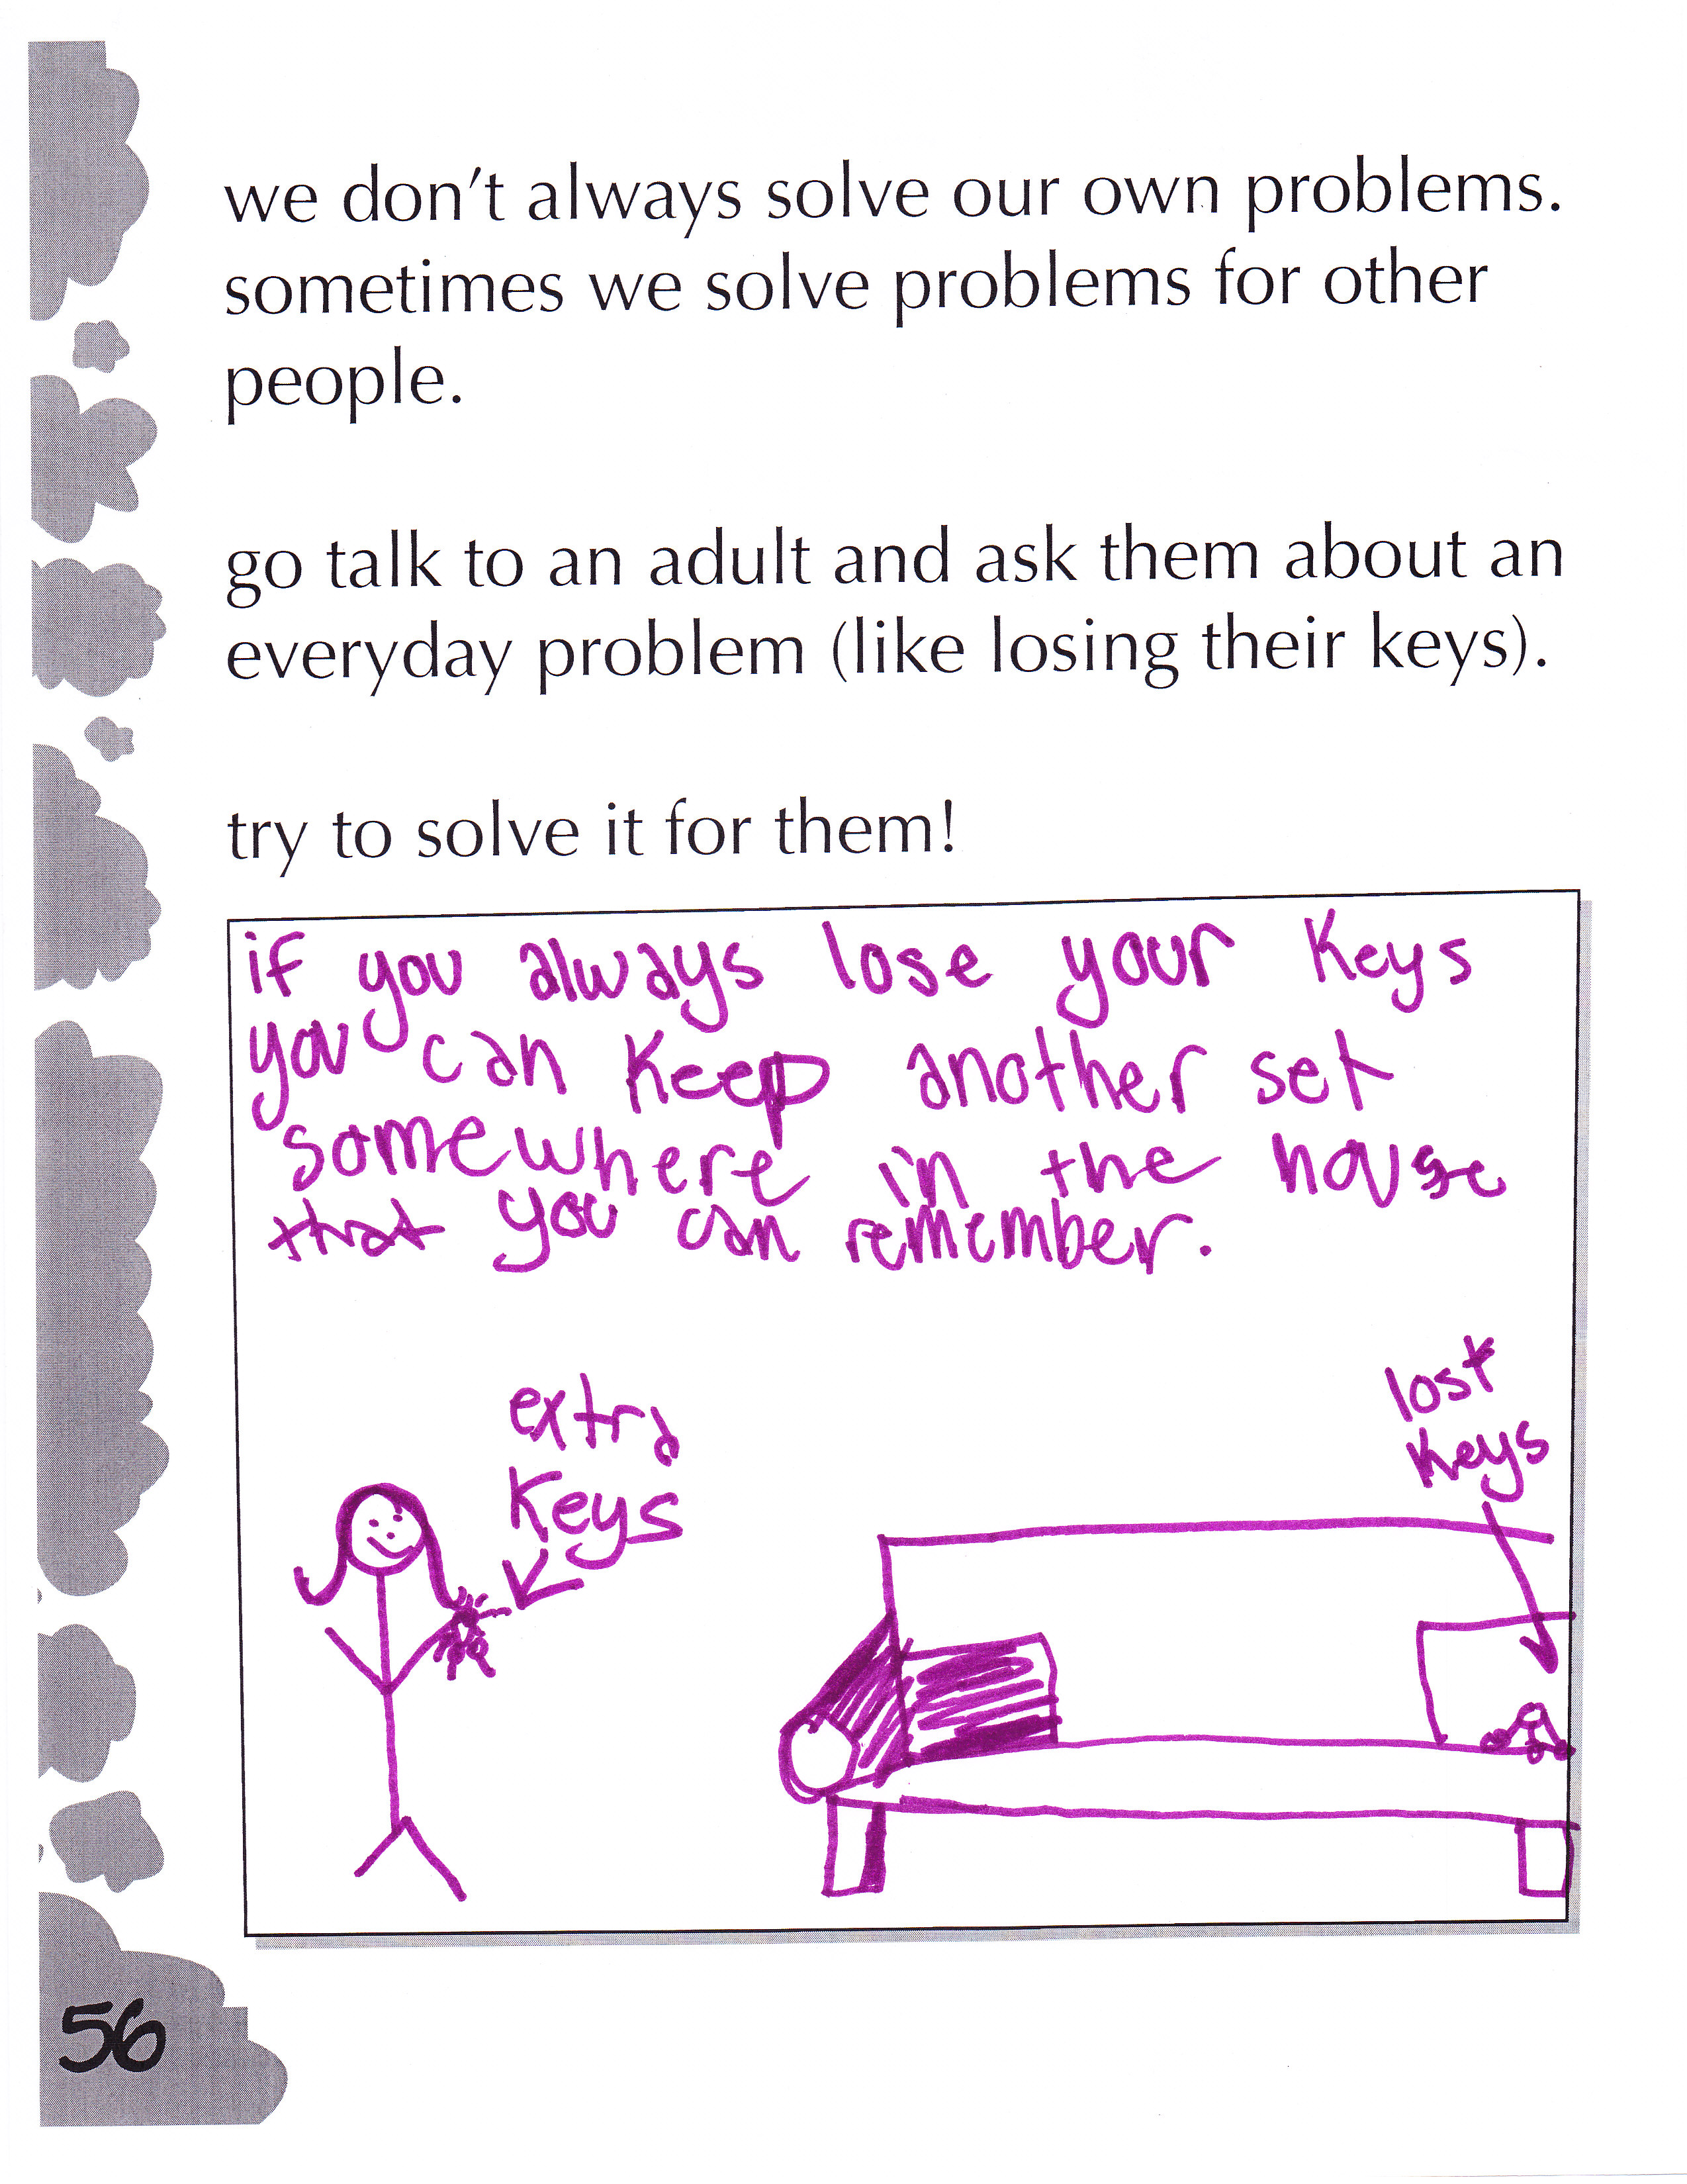 we don't always solve our own problems.
sometimes we solve problems for other
people.
go talk to an adult and ask them about an
everyday problem (like losing their keys).
try to solve it for them!
if you always lose your keys
you can keep another set
somewhere in the house
that you can remember.
extra
keys
lost
keys
56